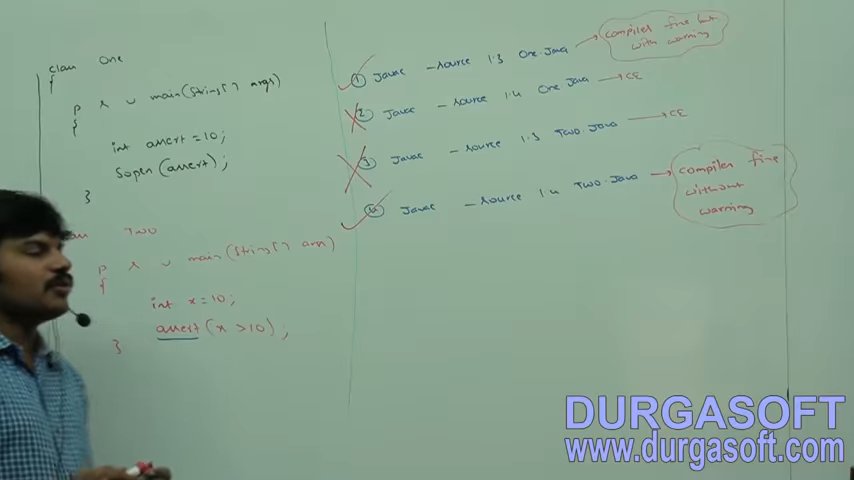 class One
{
p s v main(String[] args)
{
int assert = 10;
Sopln (assert);
}
Two
p s v main(String[] args)
{
int x = 10;
assert (x > 10);
}
① Javac -source 1.3 One.Java → compiles fine but
with warning
② Javac -source 1.4 One.Java → CE
③ Javac -source 1.3 Two.Java → CE
④ Javac -source 1.4 Two.Java → compiles fine
without
warning
DURGASOFT
www.durgasoft.com